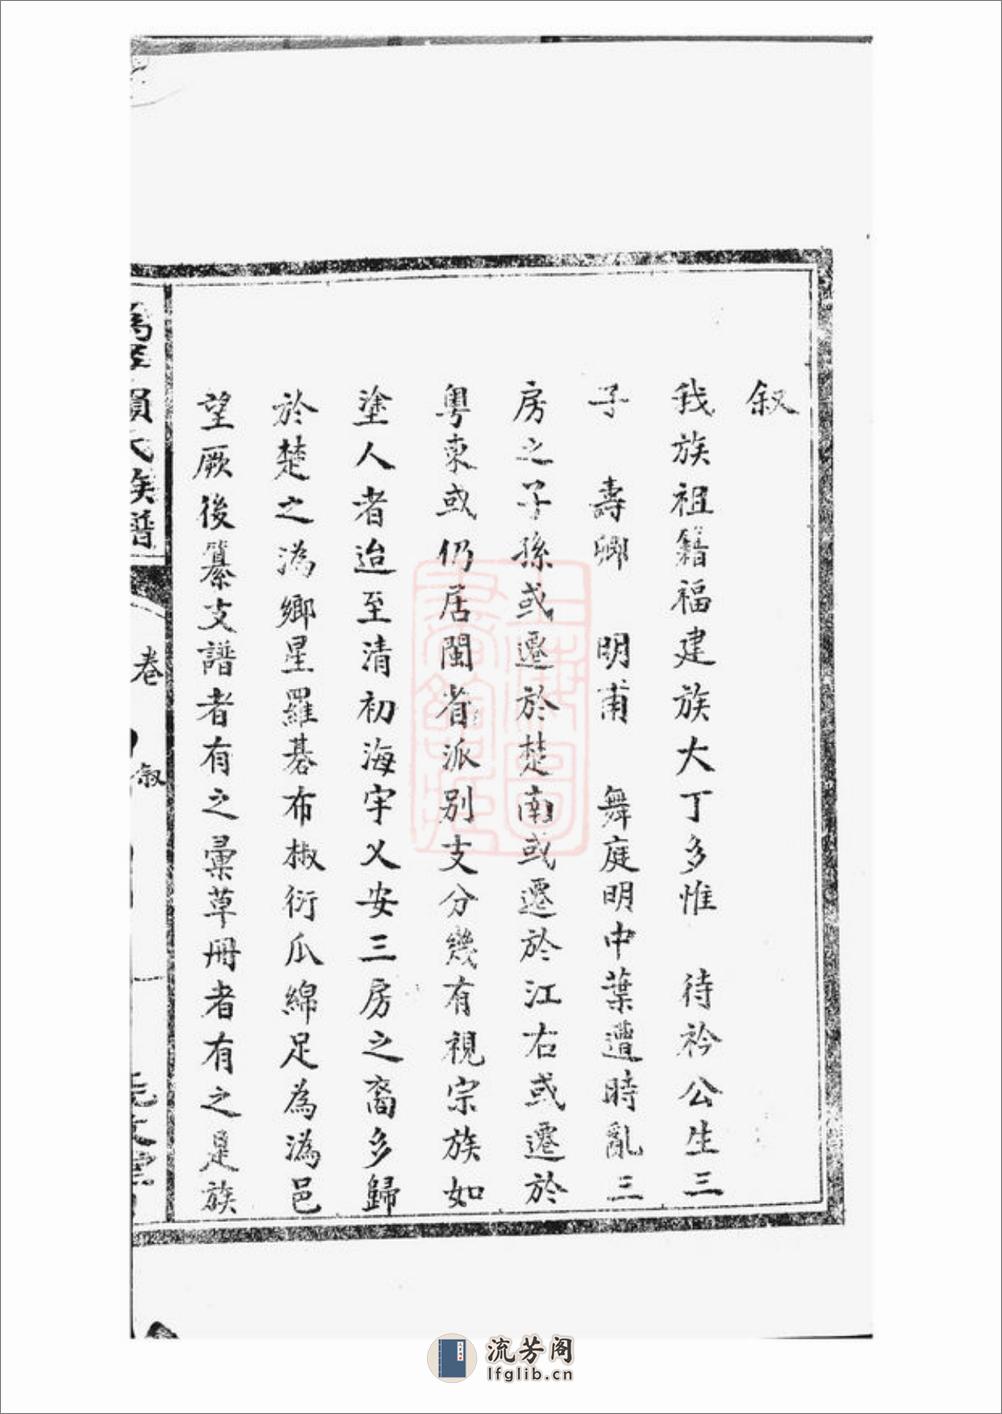 叙
我族祖籍福建族大丁多惟 待衿公生三
子 壽卿 明甫 舞庭明中葉遭時亂三
房之子孫或遷於楚南或遷於江右或遷於
粵東或仍居閩省派别支分幾有視宗族如
塗人者迨至清初海宇乂安三房之裔多歸
於楚之溈鄉星羅碁布椒衍瓜綿足為溈邑
望厥後纂支譜者有之彙草冊者有之是族
氏族譜
卷
叙
上海圖書館藏
流芳阁
lfglib.cn